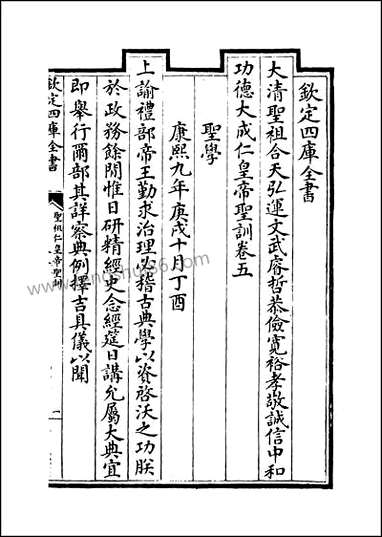 欽定四庫全書
大清聖祖合天弘運文武睿哲恭儉寬裕孝敬誠信中和
功德大成仁皇帝聖訓卷五
聖學
康熙九年庚戌十月丁酉
上諭禮部帝王勤求治理必稽古典學以資啓沃之功朕
於政務餘閒惟日研精經史念經筵日講允屬大典宜
即舉行爾部其詳察典例擇吉具儀以聞
欽定四庫全書
聖祖仁皇帝聖訓
一